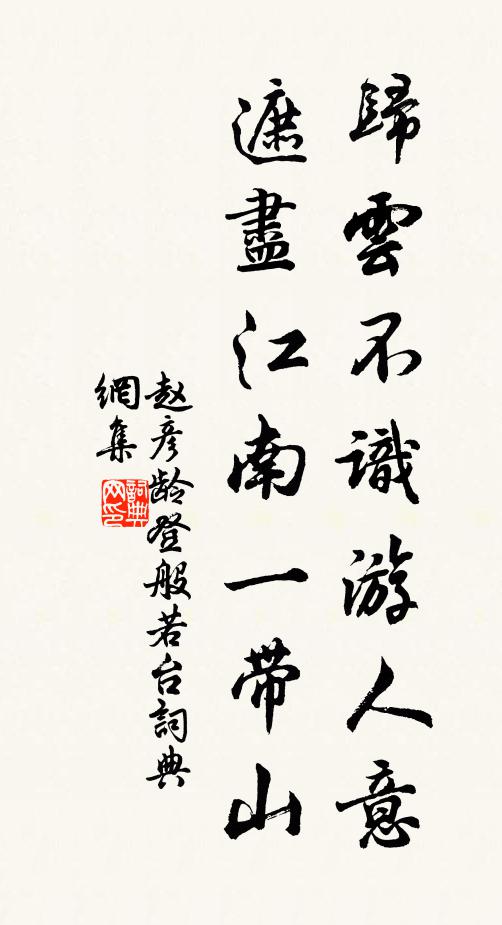 歸雲不識游人意
遮盡江南一帶山
赵彦龄登般若台詞典
網集
詞典
网印